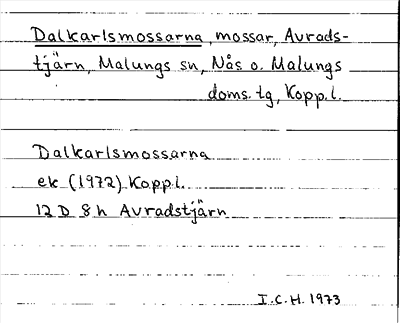 Dalkarlsmossarna, mossar, Avrads-
tjärn, Malungs sn, Nås o. Malungs
doms. tg, Kopp.l.
Dalkarlsmossarna
ek (1972) Kopp.l.
12 D 8 h Avradstjärn
I.C.H. 1973